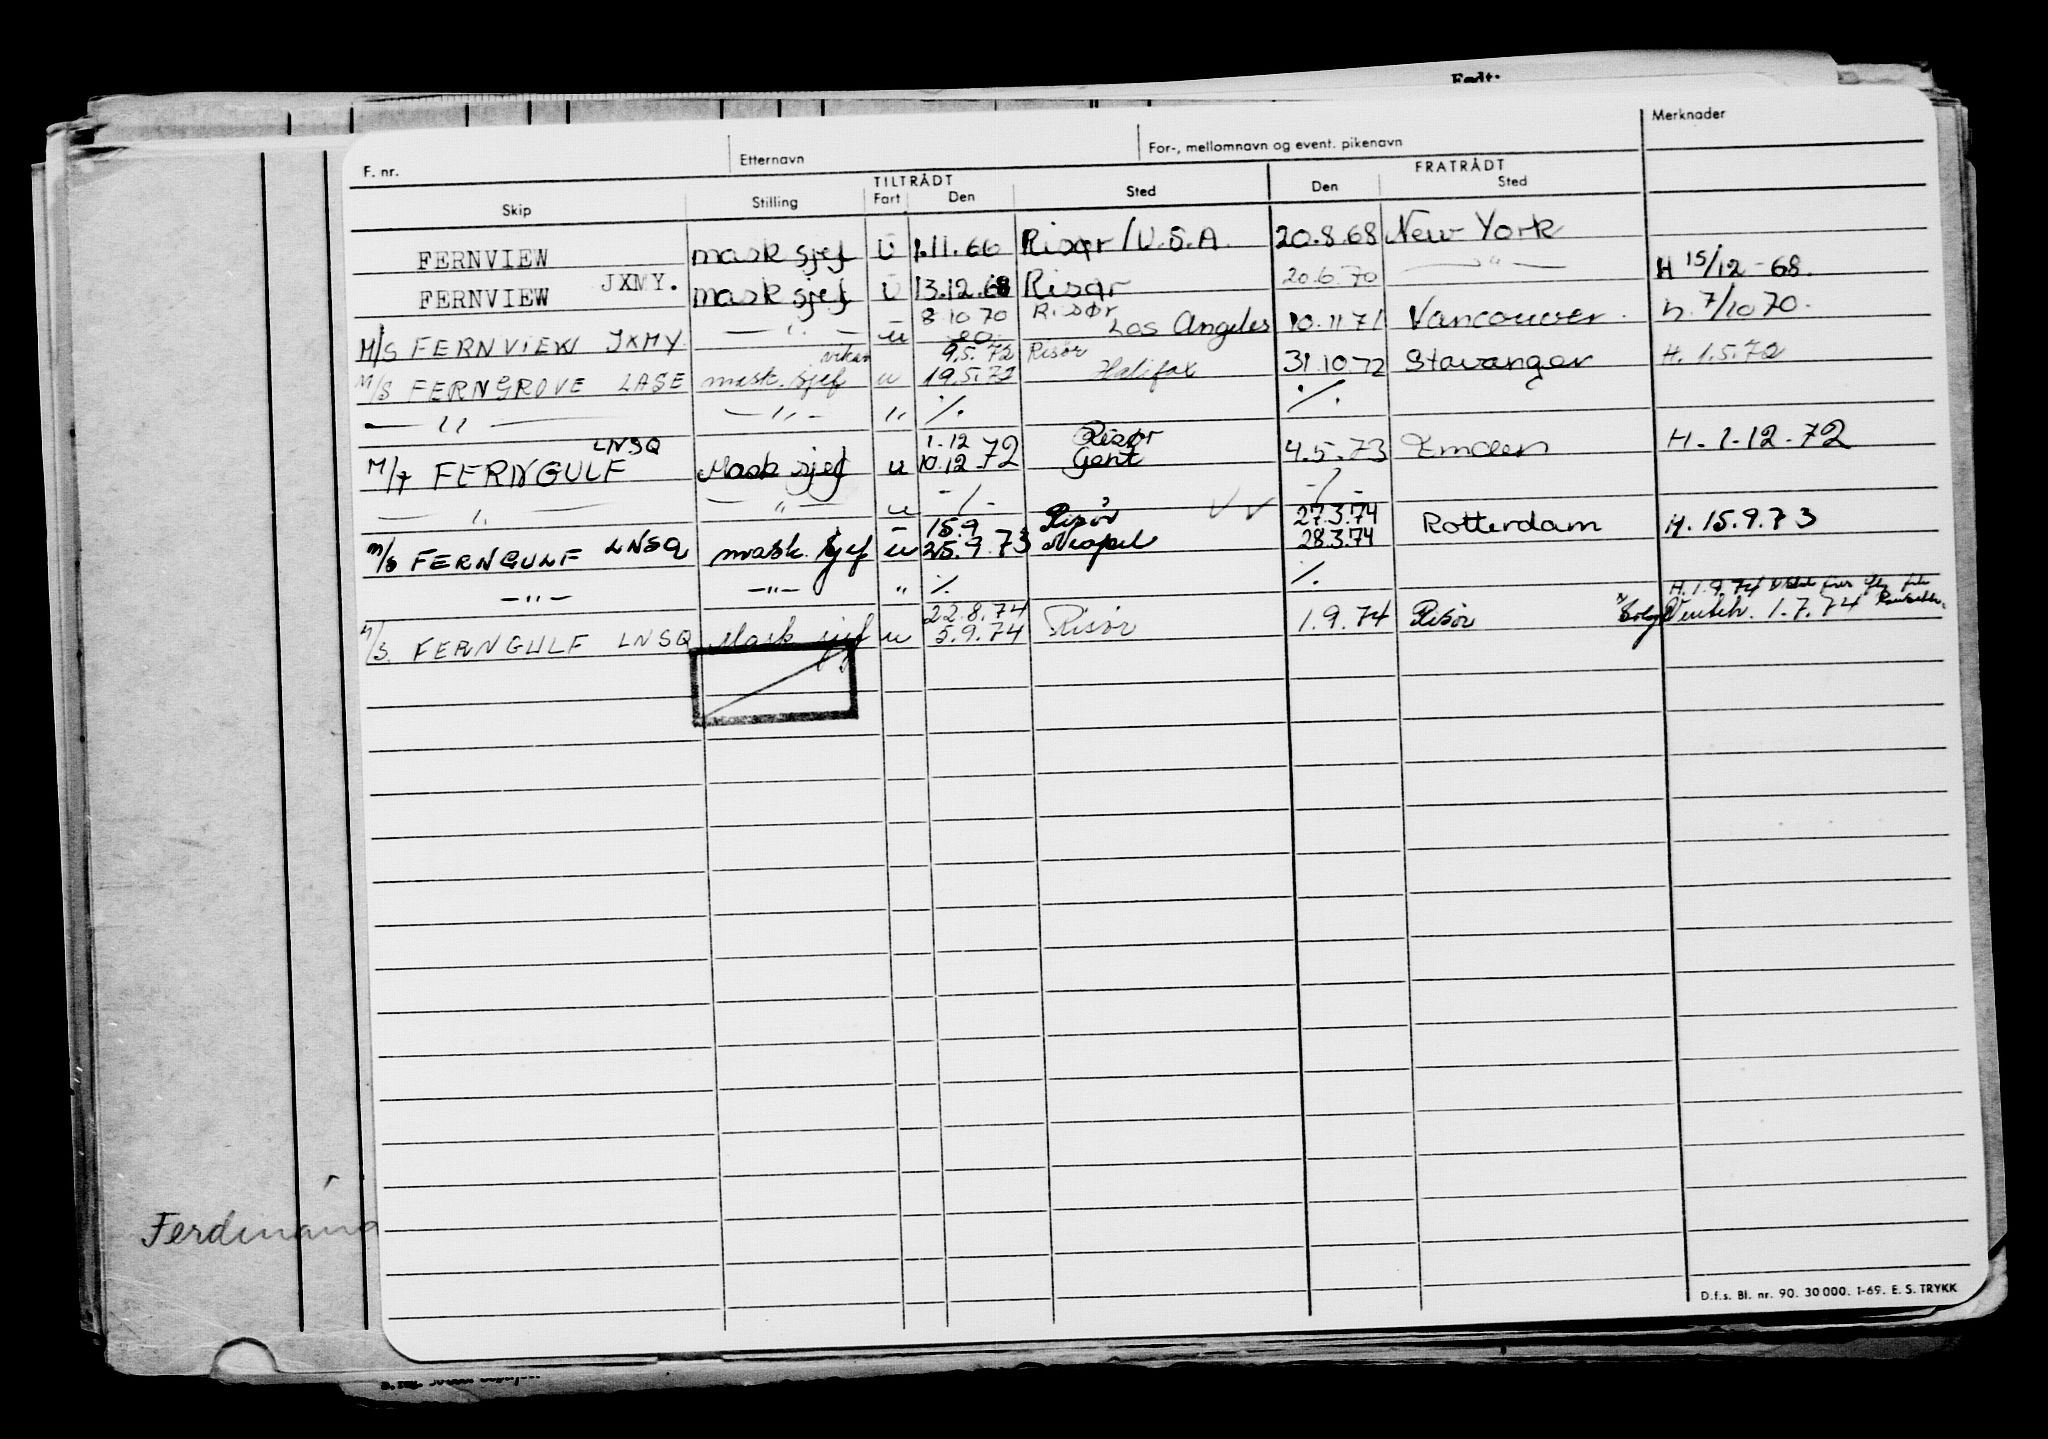 Født:
F. nr. Etternavn For-, mellomnavn og event. pikenavn Merknader
TILTRÅDT FRATRÅDT
Skip Stilling Fart Den Sted Den Sted
FERNVIEW mask sjef U 1.11.66 Risør/U.S.A. 20.8.68 New York
FERNVIEW JXMY. mask sjef U 13.12.68 Risør 20.6.70 — " — H 15/12-68.
8.10.70 Risør
M/S FERNVIEW JXMY — " — u 20 Los Angeles 10.11.71 Vancouver. h. 7/10 70.
vikar 9.5.72 Risør
M/S FERNGROVE LASE mask. sjef u 19.5.72 Halifax 31.10.72 Stavanger H. 1.5.72
— " — — " — " %. %.
LNSQ 1.12 Risør
M/T FERNGULF Mask sjef u 10.12.72 Gent 4.5.73 Emden H. 1.12.72
— " — — " — u -/- -/-
15.9 Risør 27.3.74
M/S FERNGULF LNSQ mask. sjef u 25.9.73 Neapel 28.3.74 Rotterdam H. 15.9.73
— " — — " — " %. %.
22.8.74 H. 1.9.74
M/S. FERNGULF LNSQ Mask sjef u 5.9.74 Risør 1.9.74 Risør 1.7.74
Ferdinand
D.f.s. Bl. nr. 90. 30 000. 1-69. E. S. TRYKK